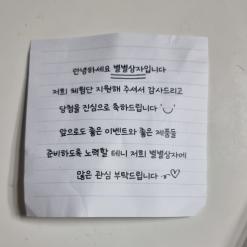 안녕하세요 별별상자입니다
저희 체험단 지원해 주셔서 감사드리고
당첨을 진심으로 축하드립니다
앞으로도 좋은 이벤트와 좋은 제품들
준비하도록 노력할 테니 저희 별별상자에
많은 관심 부탁드립니다 ♡